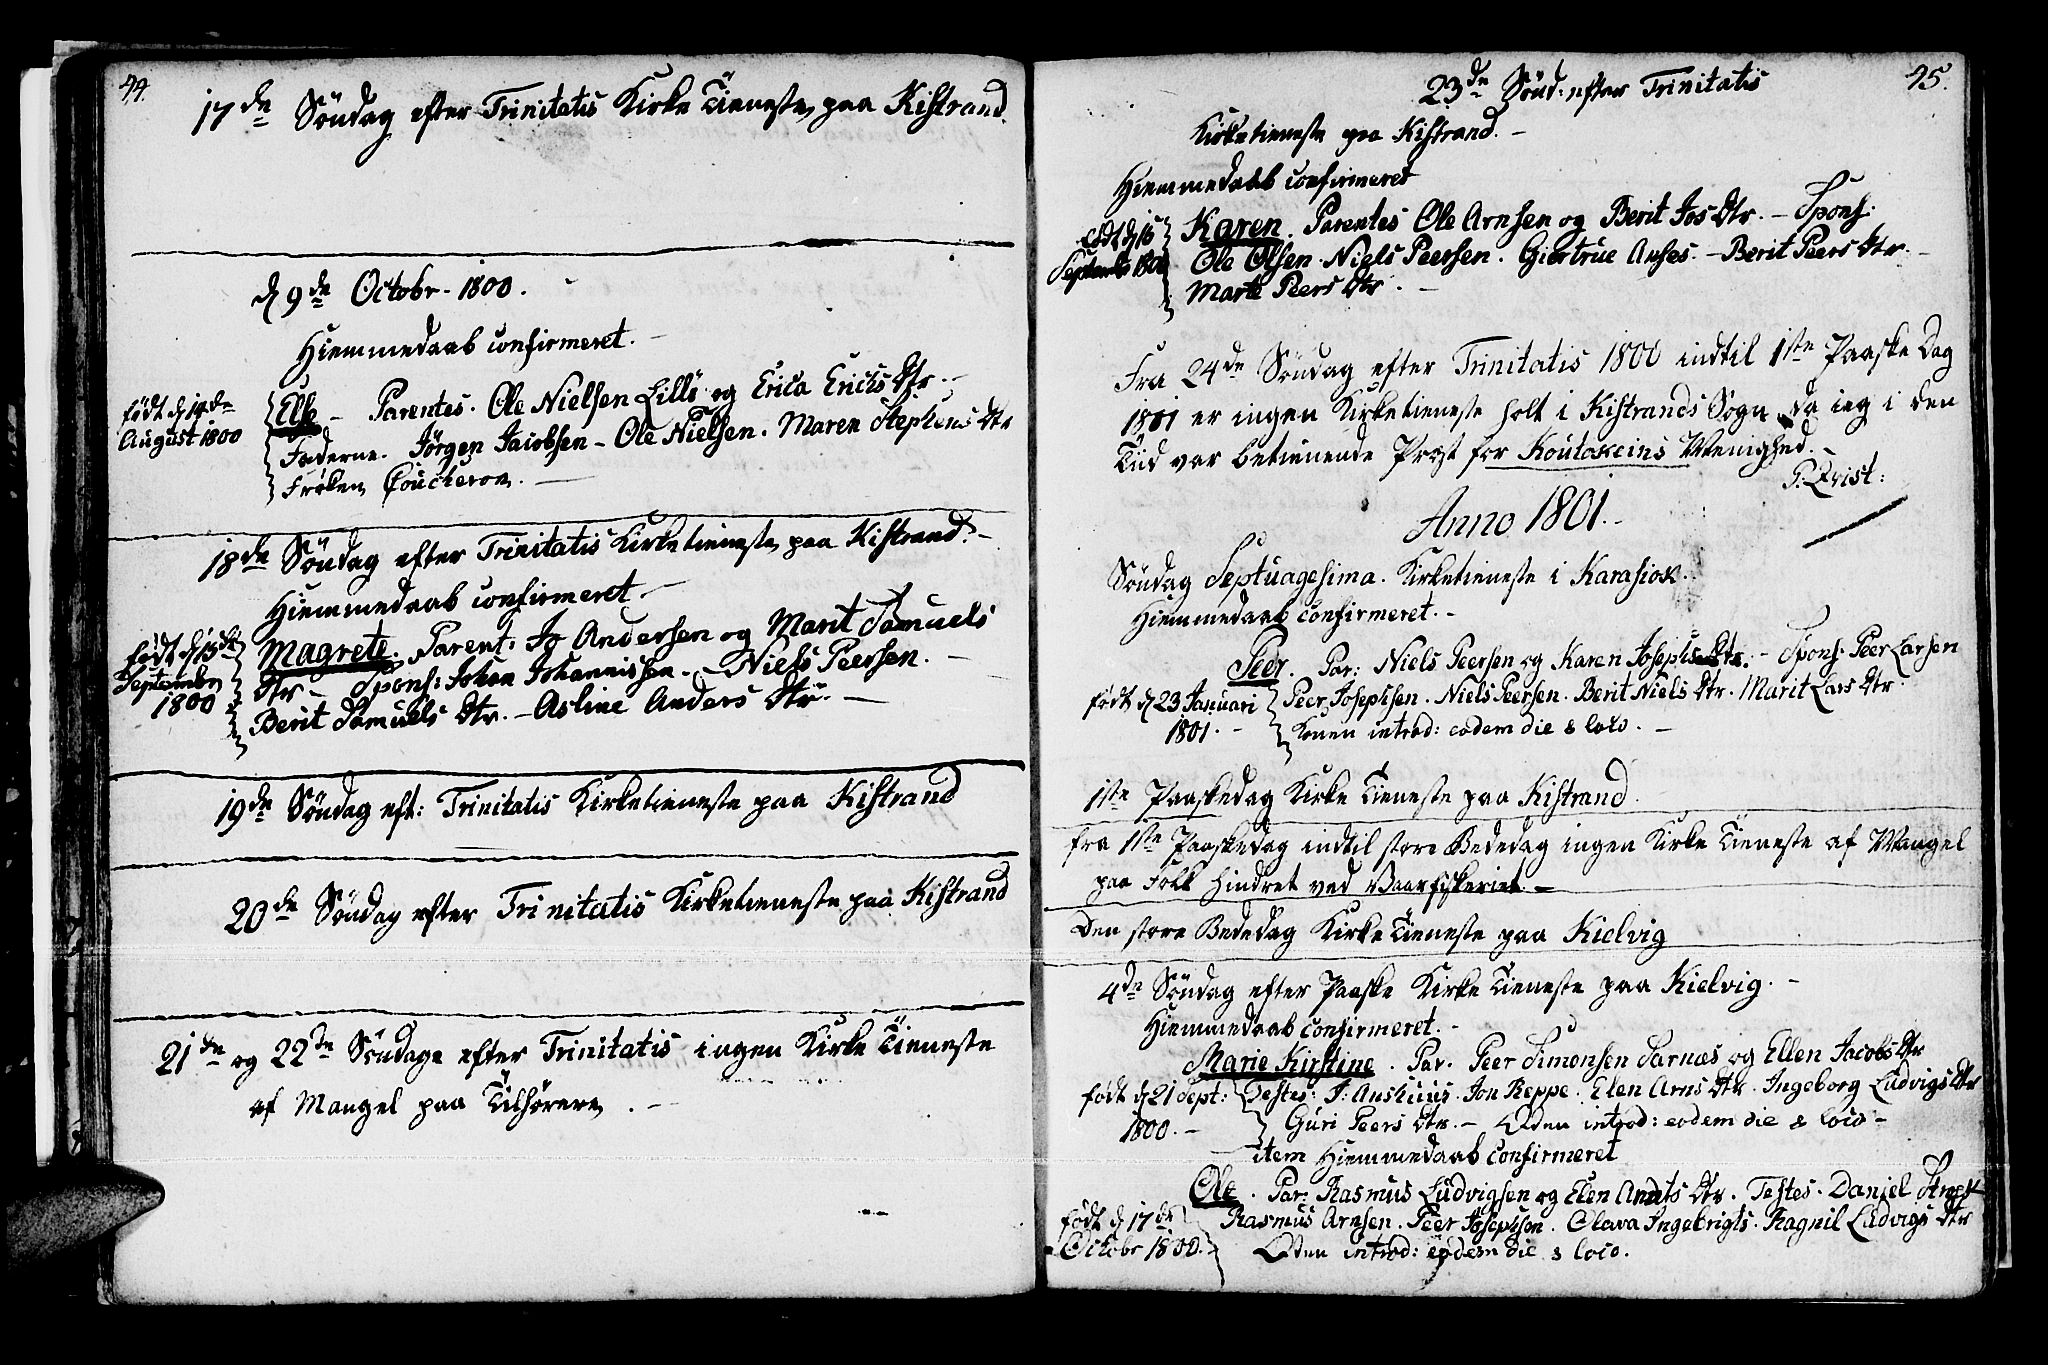 44.
17de Söndag efter Trinitatis Kirke Tieneste paa Kistrand.
d 9de Octobr. 1800.
Hiemmedaab confirmeret.
født d 14de
August 1800
Else – Parentes. Ole Nielsen Lillö og Erica Erichs Dtr. –
Fadderne. Jörgen Jacobsen – Ole Nielsen. Maren Stephens Dtr
Frøken Coucheron. –
18de Söndag efter Trinitatis Kirketieneste paa Kistrand. –
Hiemmedaab confirmeret –
født d 15de
Septembr
1800
Magrete. Parent: Jo Andersen og Marit Samuels
Dtr – Spons: Johan Johannissen. – Niels Peersen. –
Berit Samuels Dtr. – Asline Anders Dtr. –
19de Söndag eft: Trinitatis Kirketieneste paa Kistrand
20de Söndag efter Trinitatis Kirketieneste paa Kistrand
21de og 22de Söndage efter Trinitatis ingen Kirke Tieneste
af Mangel paa Tilhörere. –
45.
23de Sönd: efter Trinitatis
Kirketieneste paa Kistrand. –
Hiemmedaab confirmeret
født d 16
Septembr 1800
Karen. Parentes Ole Arnsen og Berit Jos Dtr. – Spons:
Ole Olsen. Niels Peersen. Giertrue Anses. – Berit Peers Dtr. –
Marte Peers Dtr. –
Fra 24de Söndag efter Trinitatis 1800 indtil 1ste Paaske Dag
1801 er ingen Kirketieneste holt i Kistrands Sogn, da ieg i den
Tiid var betienende Præst for Koutokeins Menighed. –
P. Qvist:
Anno 1801. –
Söndag Septuagesima. Kirketieneste i Karasiok.
Hiemmedaab confirmeret. –
Peer. Par: Niels Peersen og Karen Josephs Dtr. – Spons: Peer Larsen
født d 23 Januari
1801. –
Peer Josephsen. Niels Peersen. Berit Niels Dtr. Marit Lars Dtr.
Konen introd: eodem die & loco. –
1ste Paaskedag Kirke Tieneste paa Kistrand.
fra 1ste Paaskedag indtil store Bededag ingen Kirke Tieneste af Mangel
paa Folk hindret ved Vaarfiskeriet. –
Den store Bededag Kirke Tieneste paa Kielvig
4de Söndag efter Paaske Kirke Tieneste paa Kielvig. –
Hiemmedaab confirmeret. –
Marie Kirstine. Par. Peer Simonsen Sarnæs og Ellen Jacobs Dtr
født d 21 Sept:
1800. –
Testes: J. Jon Reppe. Elen Arns Dtr. Ingeborg Ludvigs Dtr
Guri Peers Dtr. – introd: eodem die & loco –
item Hiemmedaab confirmeret
Ole. Par: Rasmus Ludvigsen og Elen Amuts Dtr. Testes. Daniel
født d 17de
Octobr 1800. –
Rasmus Arnsen. Peer Josephson. Olava Ingebrigts. Ragnil Ludvigs Dtr
introd: eodem die & loco.